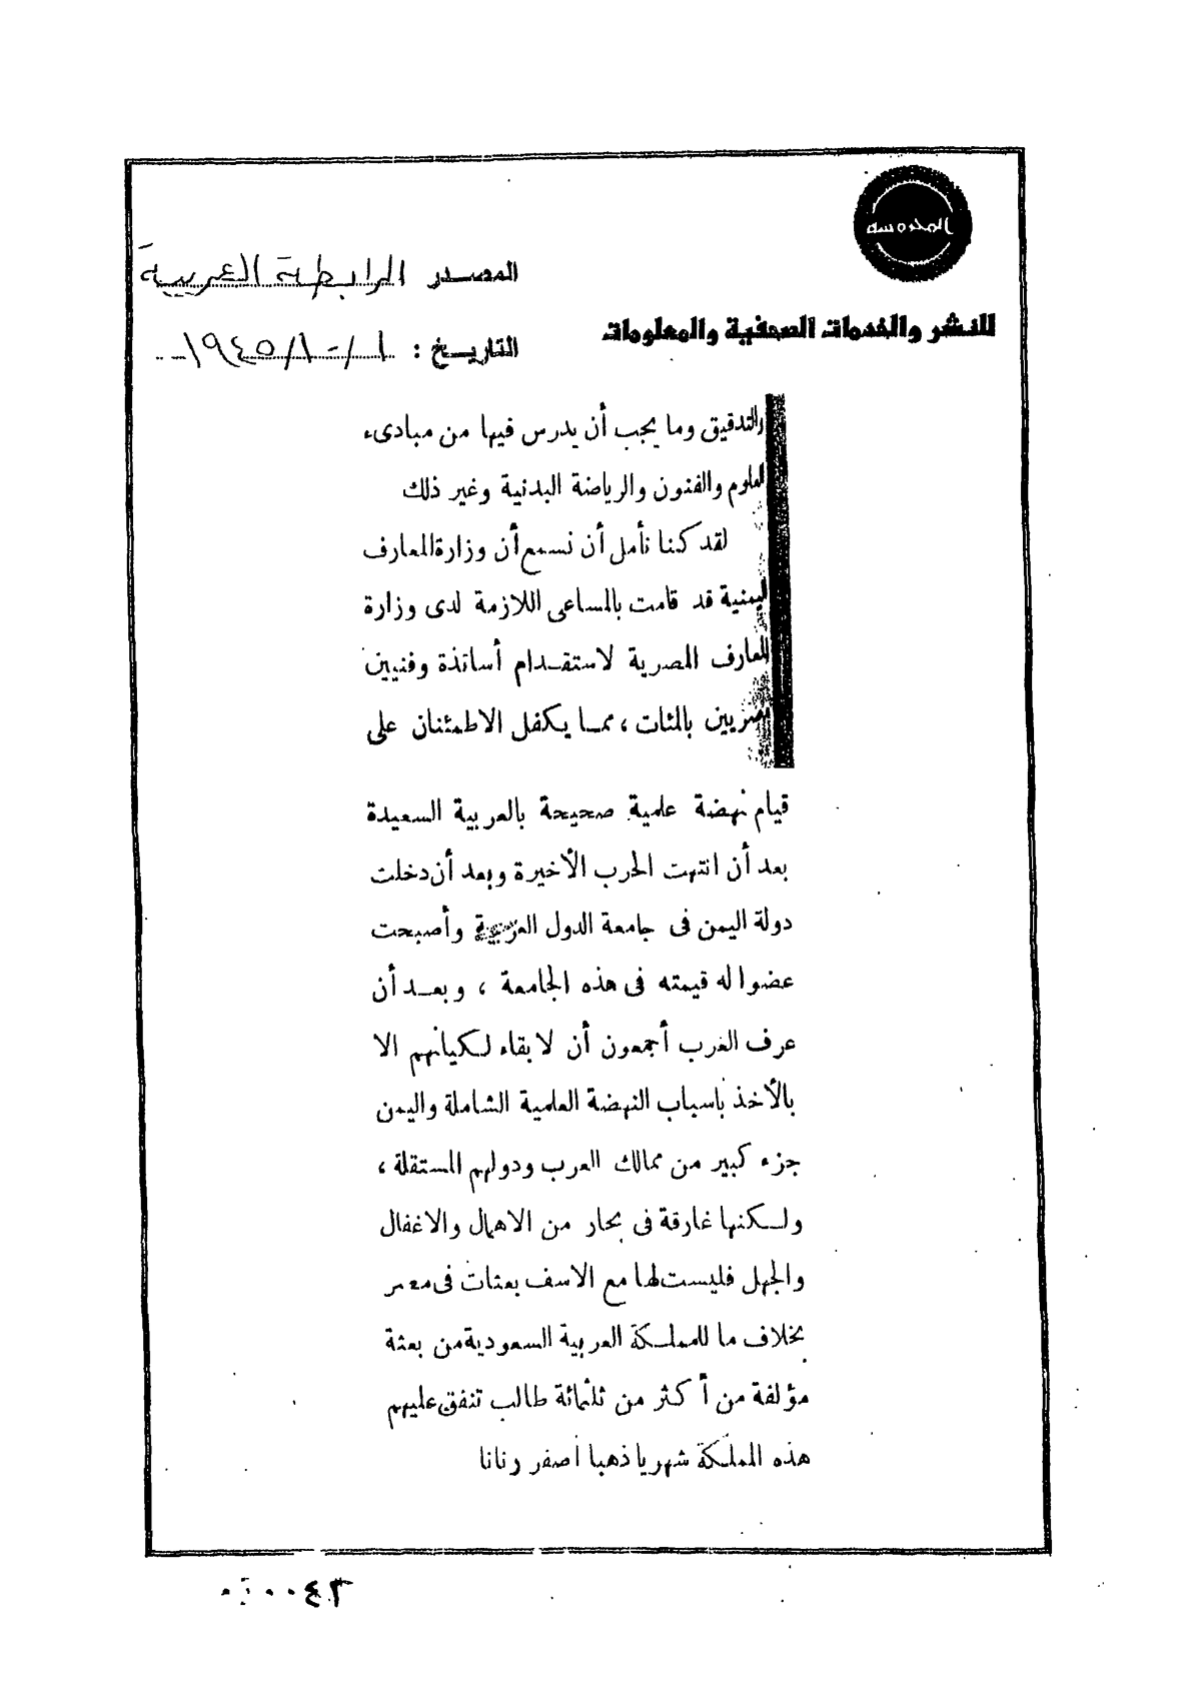 المحروسة
المصدر الرابطة العربية
للنشر والخدمات الصحفية والمعلومات
التاريخ : ١٩٤٥/١٠/١
والتدقيق وما يجب أن يدرس فيها من مبادىء
العلوم والفنون والرياضة البدنية وغير ذلك
لقد كنا نأمل أن نسمع أن وزارة المعارف
اليمنية قد قامت بالمساعى اللازمة لدى وزارة
المعارف المصرية لاستقدام أساتذة وفنيين
مصريين بالمئات ، مما يكفل الاطمئنان على
قيام نهضة علمية صحيحة بالعربية السعيدة
بعد أن انتهت الحرب الأخيرة وبعد أن دخلت
دولة اليمن فى جامعة الدول العربية وأصبحت
عضوا له قيمته فى هذه الجامعة ، وبعد أن
عرف العرب أجمعون أن لا بقاء لكيانهم الا
بالأخذ باسباب النهضة العلمية الشاملة واليمن
جزء كبير من ممالك العرب ودولهم المستقلة ،
ولكنها غارقة فى بحار من الاهمال والاغفال
والجهل فليست لها مع الاسف بعثات فى مصر
بخلاف ما للمملكة العربية السعودية من بعثة
مؤلفة من أكثر من ثلثمائة طالب تنفق عليهم
هذه المملكة شهريا ذهبا أصفر رنانا